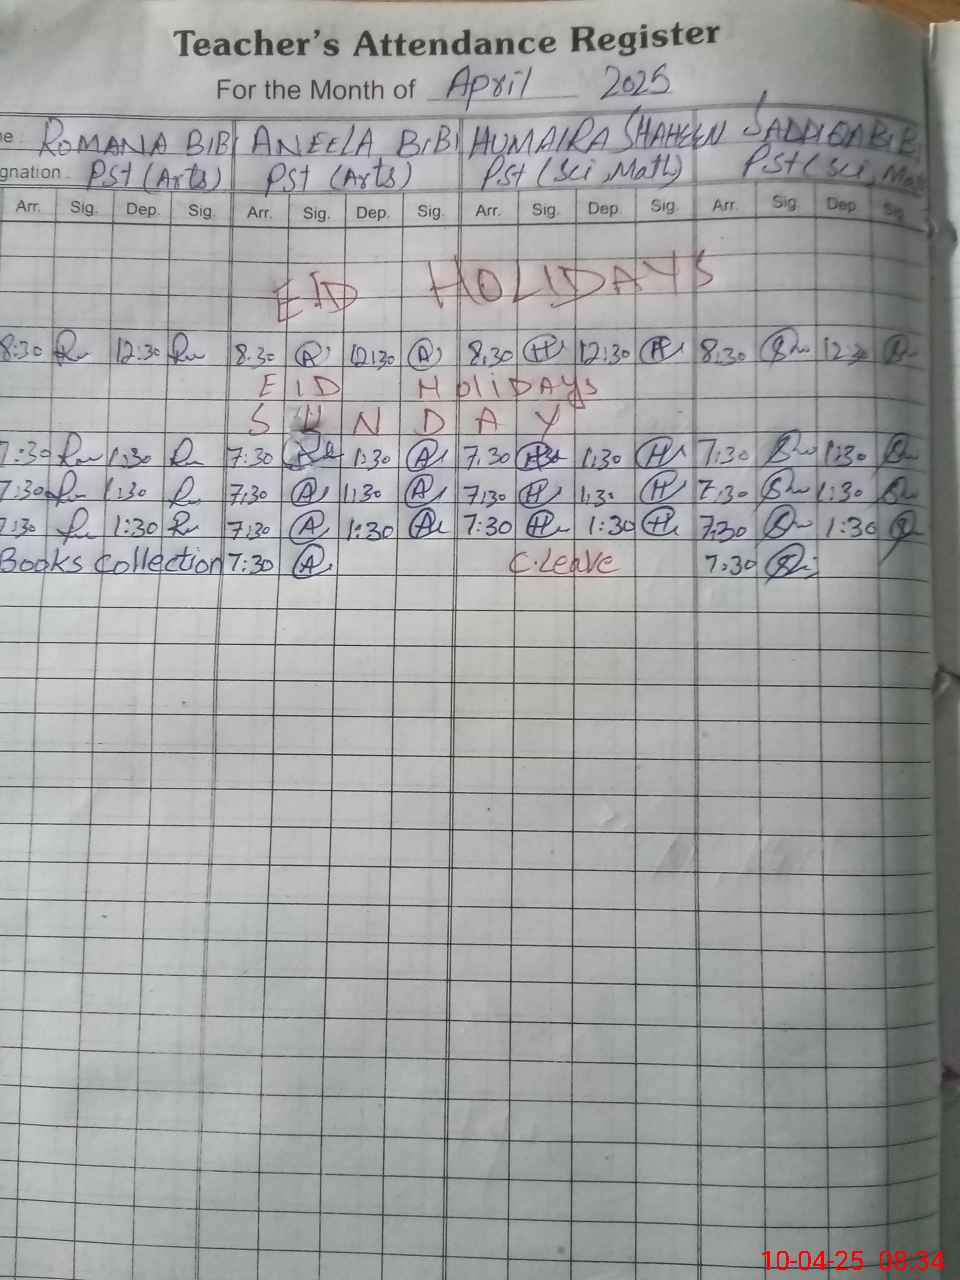 Teacher's Attendance Register
For the Month of April 2025
e ROMANA BIBI ANEELA BIBI HUMAIRA SHAHEEN SADDIQA BIBI
gnation. PST (Arts) PST (Arts) PST (Sci, Math) PST (Sci, Math
Arr. Sig. Dep. Sig. Arr. Sig. Dep. Sig. Arr. Sig. Dep. Sig. Arr. Sig. Dep. Sig.
EID HOLIDAYS
8:30 12:30 8.30 A 12:30 A 8.30 H 12:30 H 8.30 12:30
EID HOLIDAYS
SUNDAY
7:30 1:30 7:30 1:30 A 7.30 1:30 H 7:30 1:30
7:30 1:30 7:30 A 1:30 A 7:30 H 1:30 H 7:30 1:30
7:30 1:30 7:30 A 1:30 A 7:30 H 1:30 H 7:30 1:30
Books collection 7:30 A C.Leave 7:30
10-04-25 08:34